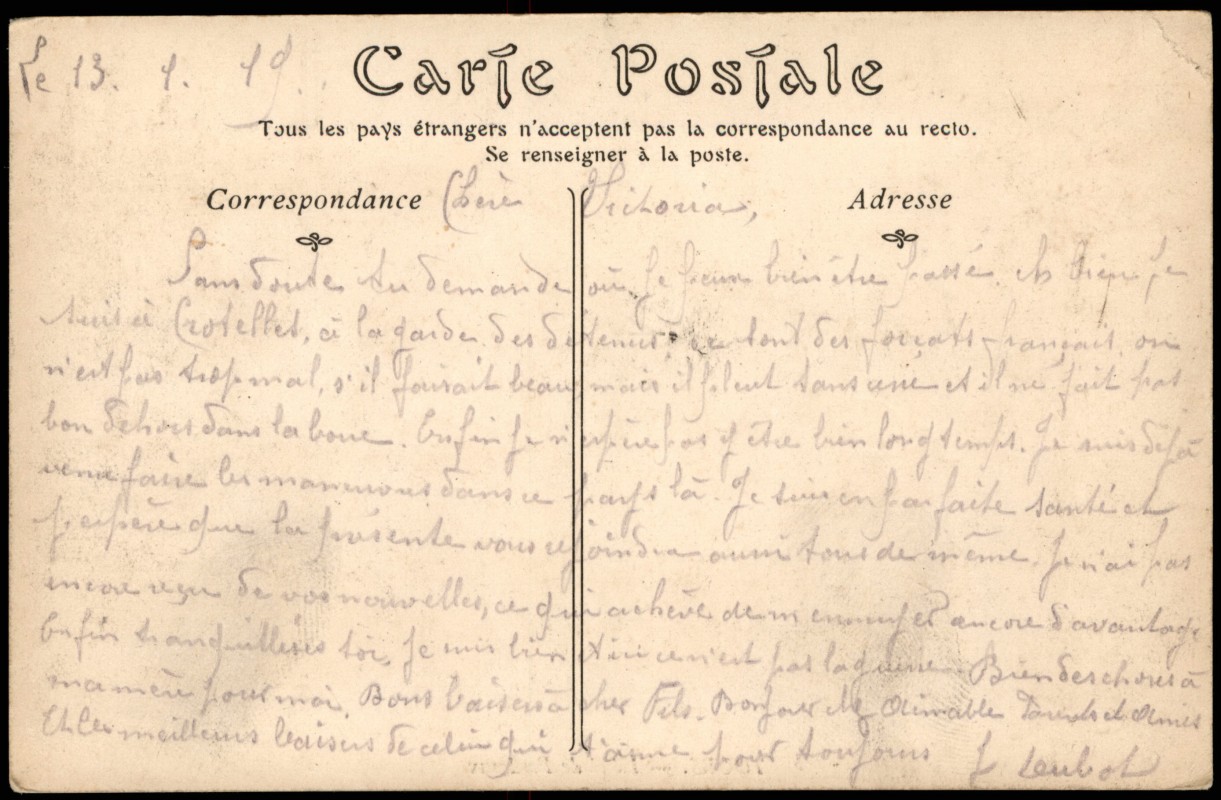 Le 13. 1. 19.
Carte Postale
Tous les pays étrangers n'acceptent pas la correspondance au recto.
Se renseigner à la poste.
Correspondance
Adresse
Chère Victoria,
Sans doute tu demande où je peux bien être passé. Eh bien je
suis à à la garde des détenus ce sont des forçats français on
n'est pas trop mal, s'il faisait beau mais il pleut sans cesse et il ne fait pas
bon dehors dans la boue. Enfin je n'espère pas y être bien longtemps. Je suis déjà
venu faire les manœuvres dans ce pays là. Je suis en parfaite santé et
j'espère que la présente vous rejoindra aussi tous de même. Je n'ai pas
encore reçu de vos nouvelles, ce qui achève de m'ennuyer encore d'avantage
Enfin tranquillises toi, je suis bien et ici ce n'est pas la guerre. Bien des choses à
ma mère pour moi. Bons baisers à cher Fils. Bonjour Aimable Parents et Amies
Et les meilleurs baisers de celui qui t'aime pour toujours